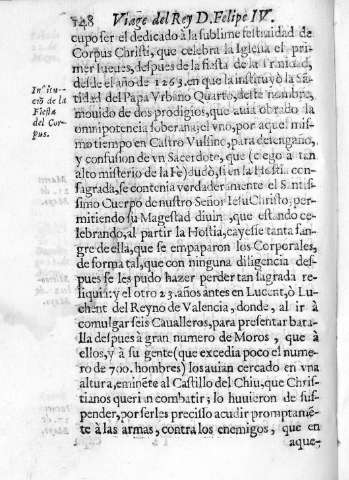 148 Viage del Rey D. Felipe IV.
cupo ser el dedicado à la sublime festiuidad de
Corpus Christi, que celebra la Iglesia el pri
mer Iueues, despues de la fiesta de la Trinidad,
desde el año de 1263. en que la instituyò la Sã
tidad del Papa Vrbano Quarto, deste nombre,
mouido de dos prodigios, que auia obrado la
omnipotencia soberana; el vno, por aquel mis-
mo tiempo en Castro Vulsino, para desengaño,
y confusion de vn Sacerdote, que (ciego à tan
alto misterio de la Fè) dudò, si en la Hostia con-
sagrada, se contenia verdaderamente el Santis-
simo Cuerpo de nuestro Señor Iesu Christo, per-
mitiendo su Magestad diuina, que estando ce-
lebrando, al partir la Hostia, cayesse tanta san-
gre de ella, que se empaparon los Corporales,
de forma tal, que con ninguna diligencia des-
pues se les pudo hazer perder tan sagrada re-
liquia: y el otro 23. años antes en Lucent, ò Lu-
chent del Reyno de Valencia, donde, al ir à
comulgar seis Caualleros, para presentar bata-
lla despues à gran numero de Moros, que à
ellos, y à su gente (que excedia poco el nume-
ro de 700. hombres) los auian cercado en vna
altura, eminẽte al Castillo del Chiu, que Chris-
tianos querian combatir; lo huuieron de sus-
pender, por serles precisso acudir promptamẽ-
te à las armas, contra los enemigos, que en
aque-
Institu-
ciõ de la
Fiesta
del Cor-
pus.